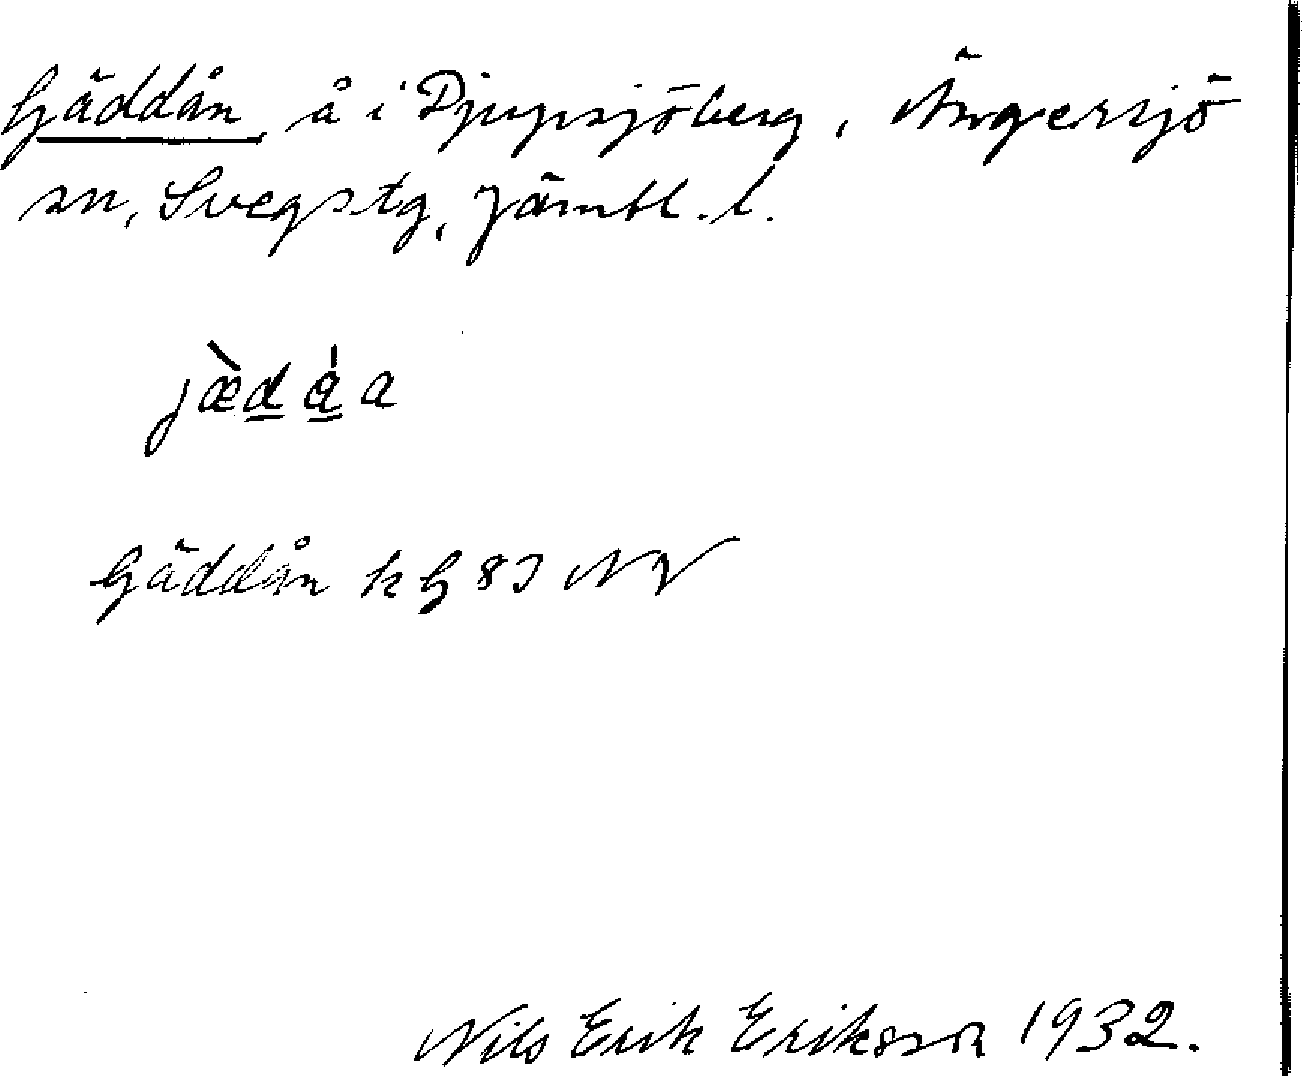 Gäddån, å i Djupsjöberg, Ängersjö
sn, Svegs tg, Jämtl. l.
jæ̀d å̀ a
Gäddån k G 83 NV
Nils Erik Eriksson 1932.